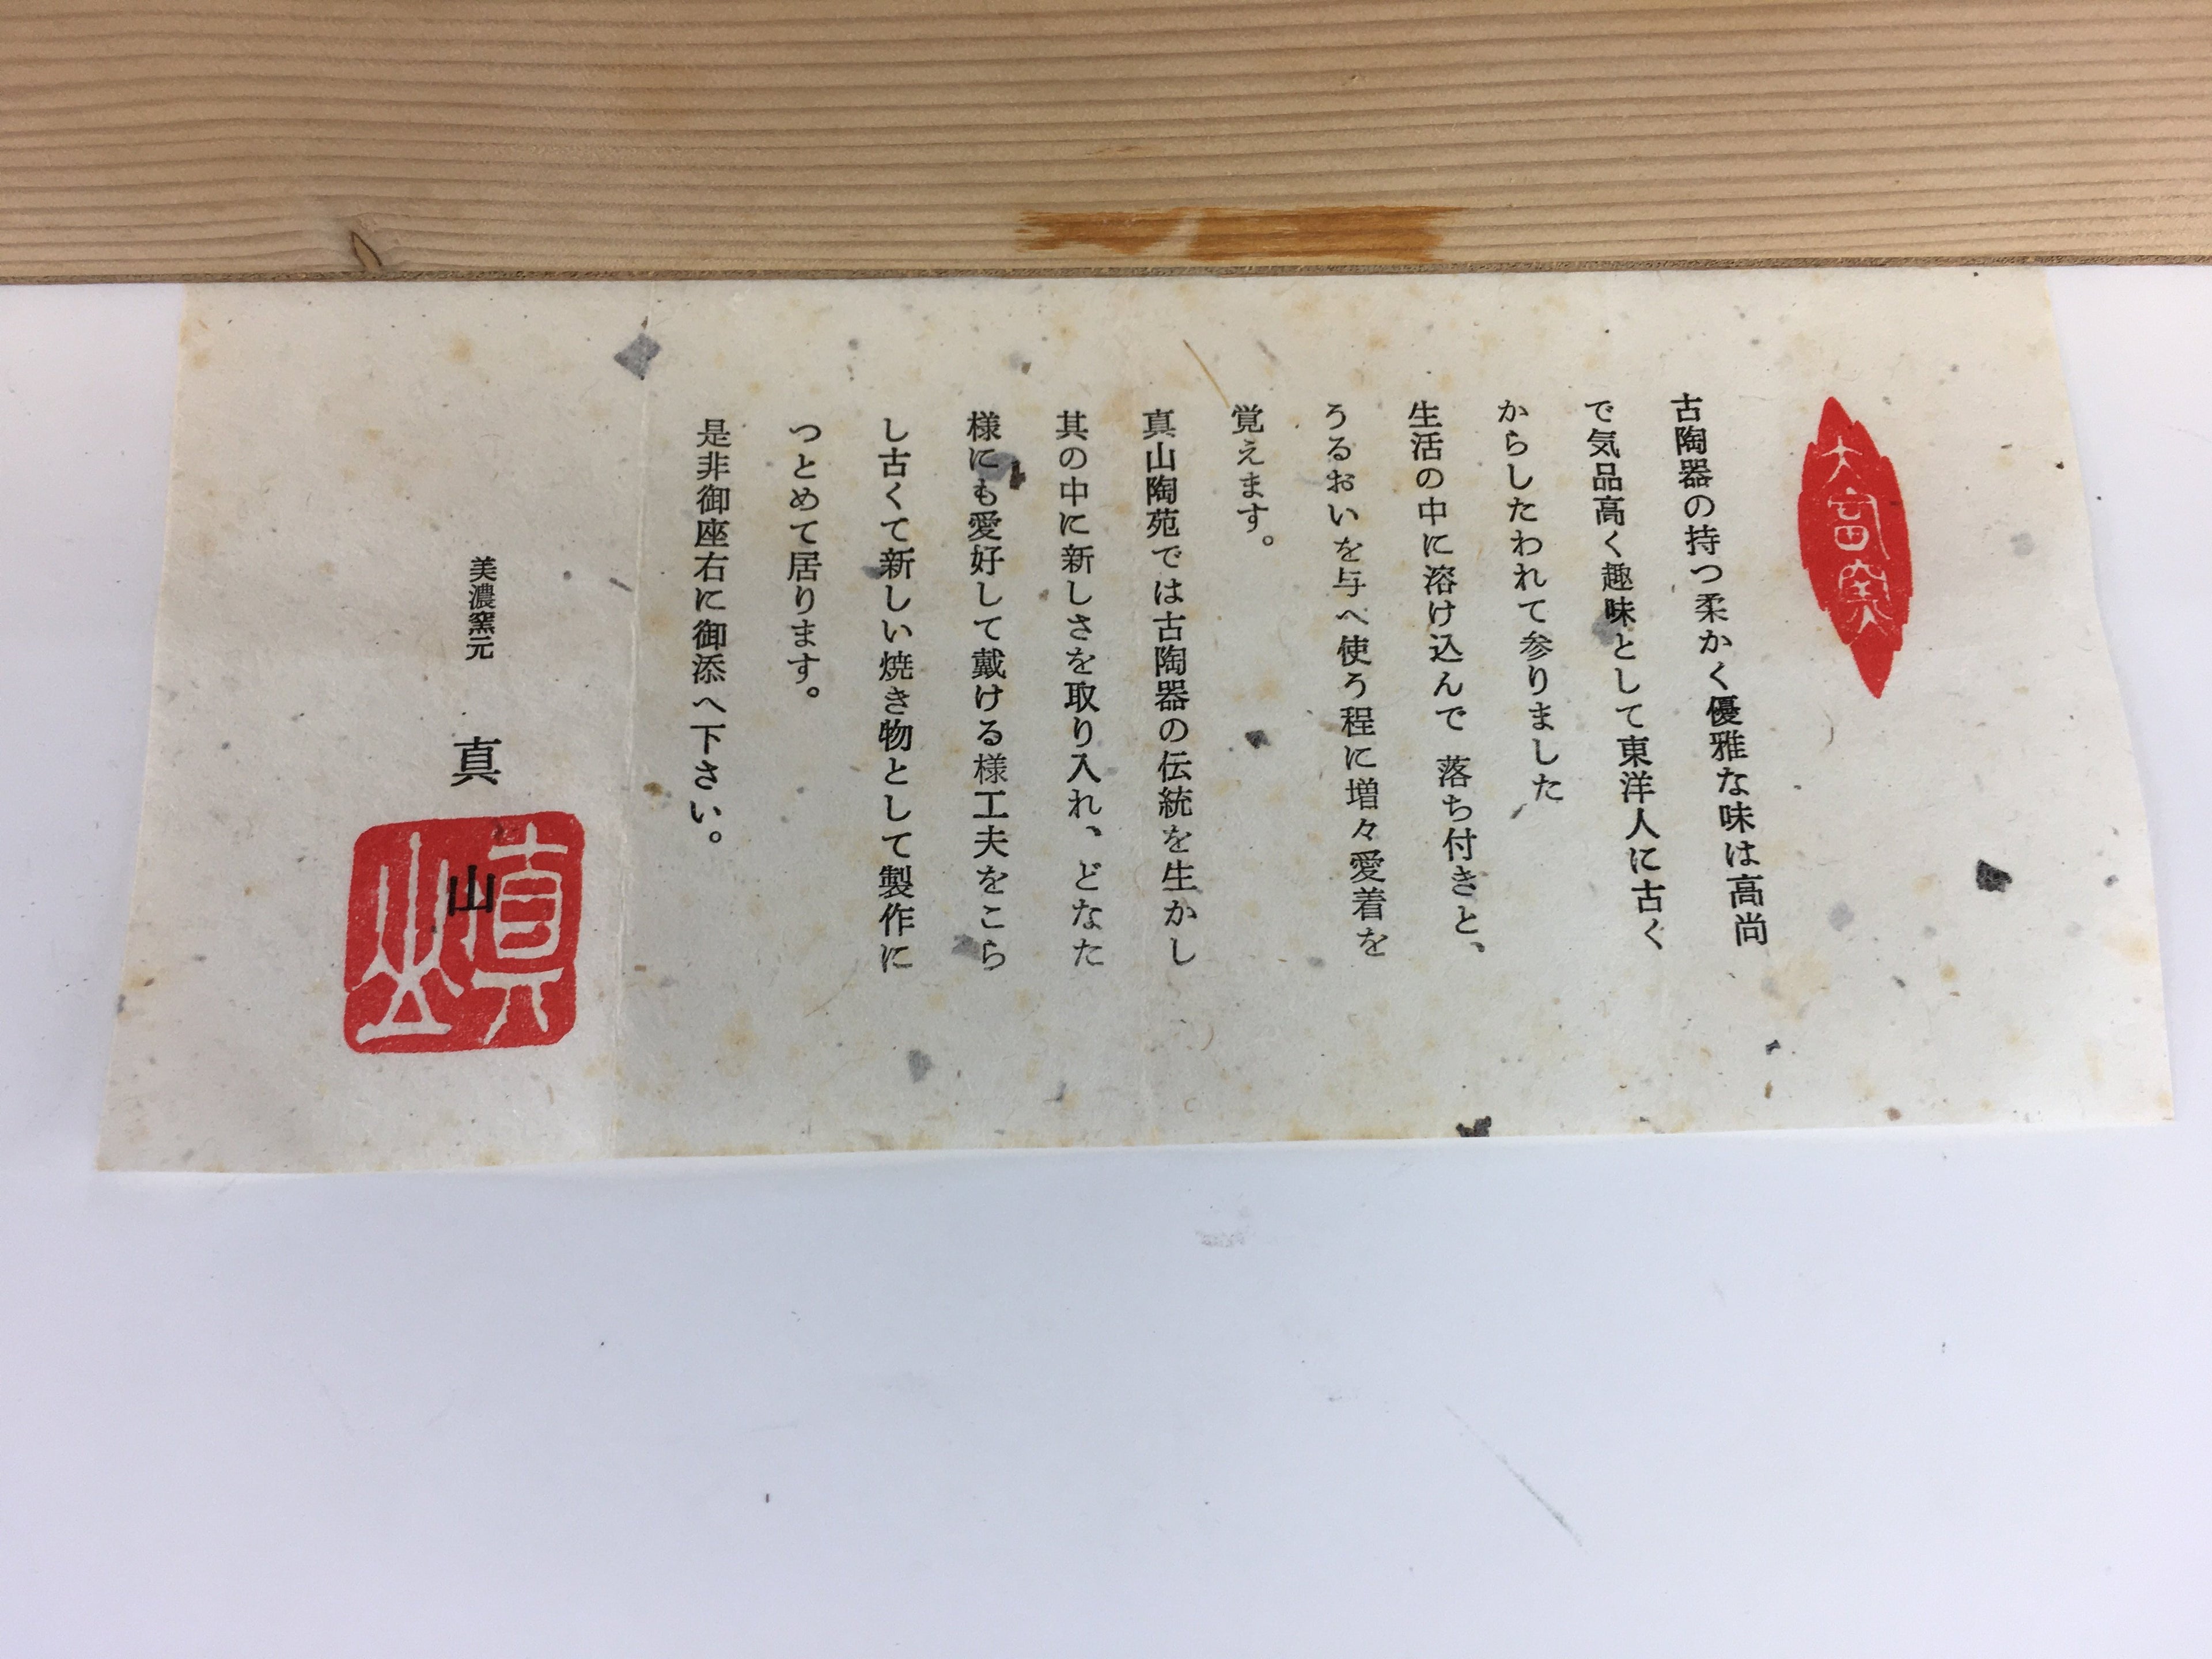 大富窯
古陶器の持つ柔かく優雅な味は高尚
で気品高く趣味として東洋人に古く
からしたわれて参りました
生活の中に溶け込んで 落ち付きと、
うるおいを与へ使う程に増々愛着を
覚えます。
真山陶苑では古陶器の伝統を生かし
其の中に新しさを取り入れ、どなた
様にも愛好して戴ける様工夫をこら
し古くて新しい焼き物として製作に
つとめて居ります。
是非御座右に御添へ下さい。
美濃窯元 真山
眞山